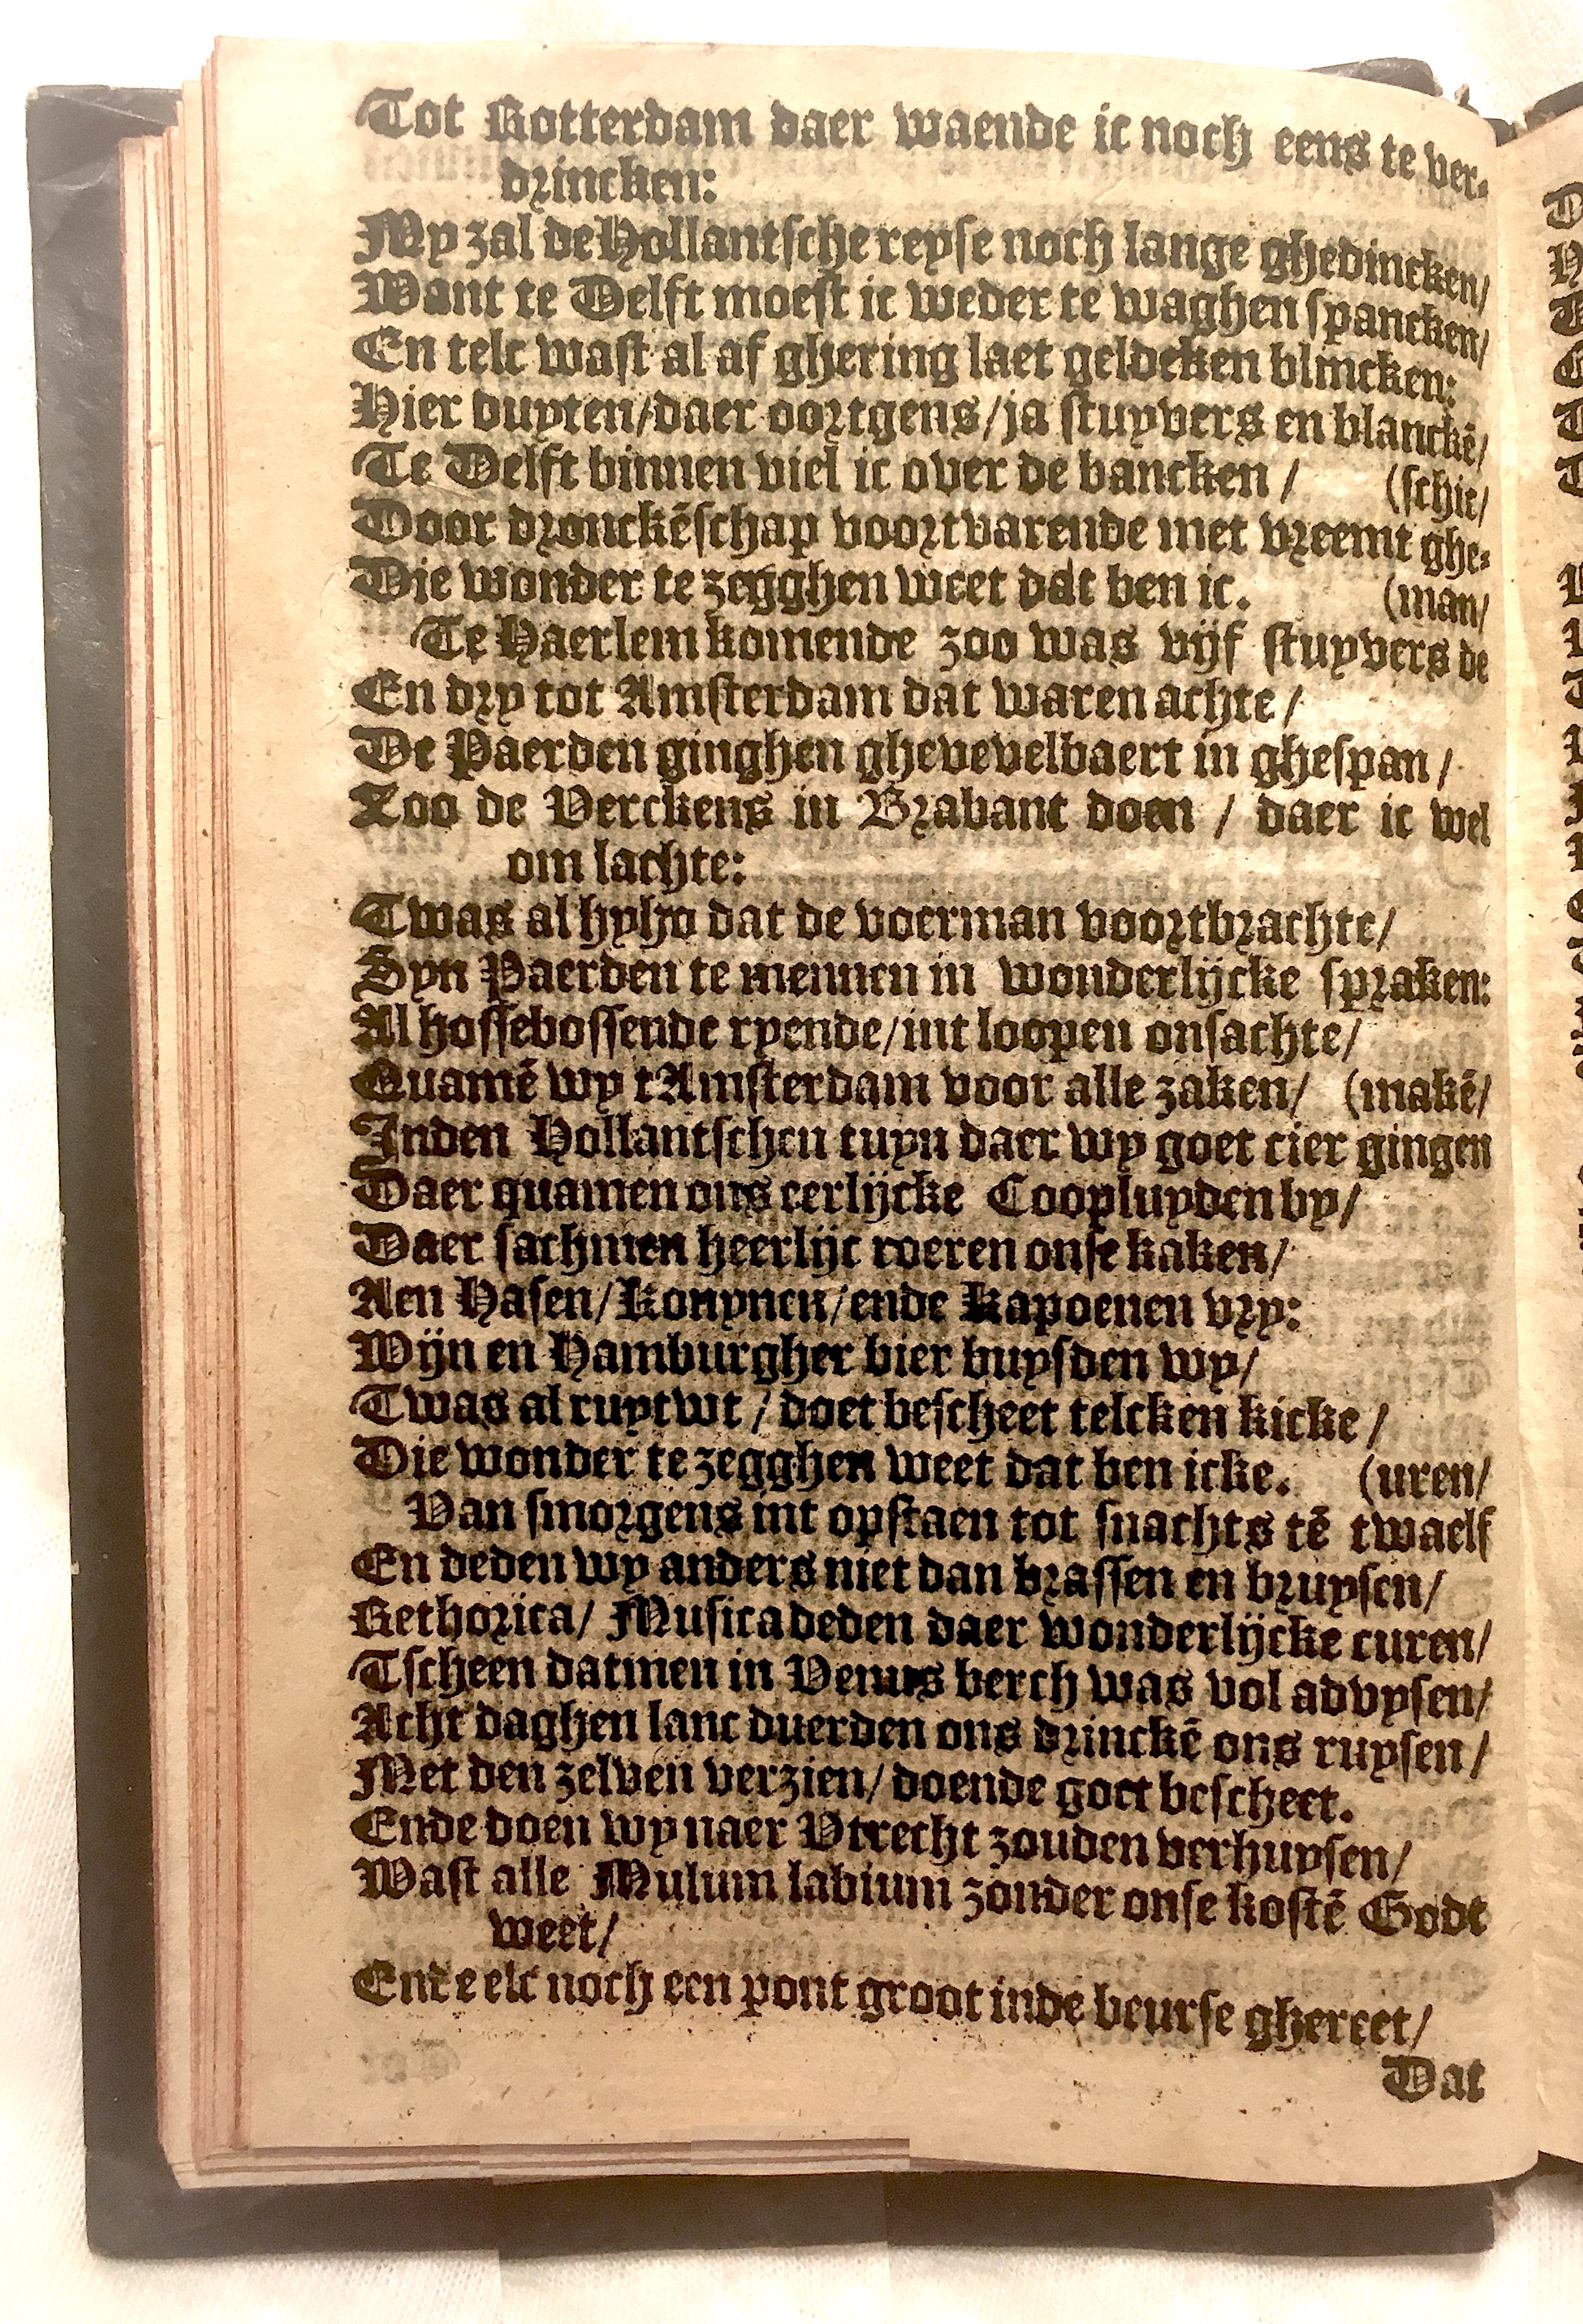 Tot Rotterdam daer waende ic noch eens te ver-
drincken:
My zal de Hollantsche reyse noch lange ghedincken/
Want te Delft moest ic weder te waghen spancken/
En telc wast al af ghering laet geldeken blincken:
Hier duyten/daer oortgens/ja stuyvers en blanckē/
Te Delft binnen viel ic over de bancken / (schic/
Door dronckēschap voortvarende met vreemt ghe-
Die wonder te zegghen weet dat ben ic. (man/
Te Haerlem komende zoo was vijf stuyvers de
En dry tot Amsterdam dat waren achte /
De Paerden ginghen ghevevelbaert in ghespan /
Zoo de Verckens in Brabant doen / daer ic wel
om lachte:
Twas al hyho dat de voerman voortbrachte/
Syn Paerden te mennen in wonderlijcke spraken:
Al hossebossende ryende/int loopen onsachte/
Quamē wy tAmsterdam voor alle zaken/ (makē/
Inden Hollantschen tuyn daer wy goet cier gingen
Daer quamen ons eerlijcke Coopluyden by/
Daer sachmen heerlijc roeren onse kaken/
Aen Hasen/Konynen/ende Kapoenen vry:
Wijn en Hamburgher bier buysden wy/
Twas al ruyt wt / doet bescheet telcken kicke /
Die wonder te zegghen weet dat ben icke. (uren/
Van smorgens int opstaen tot snachts tē twaelf
En deden wy anders niet dan brassen en bruysen/
Rethorica/ Musica deden daer wonderlijcke curen/
Tscheen datmen in Venus berch was vol advysen/
Acht daghen lanc duerden ons drinckē ons ruysen/
Met den zelven verzien/ doende goet bescheet.
Ende doen wy naer Vtrecht zouden verhuysen/
Wast alle Mulum labium zonder onse kostē Godt
weet/
Ende elc noch een pont groot inde beurse ghereet/
Dat